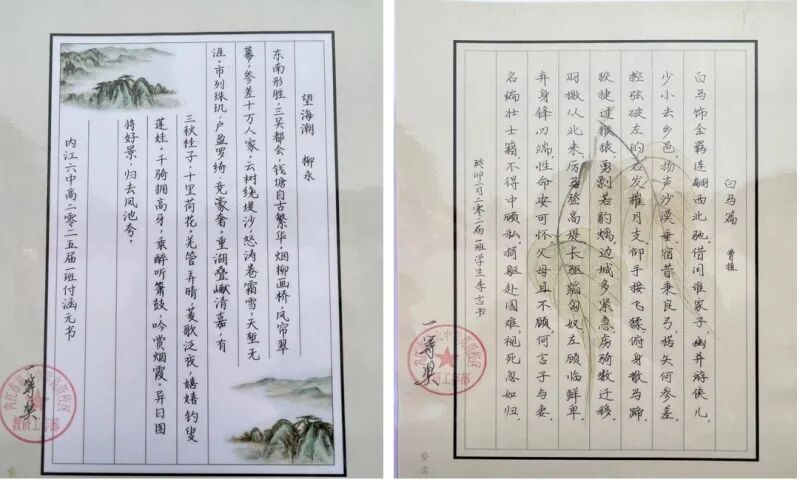 望海潮 柳永
东南形胜，三吴都会，钱塘自古繁华。烟柳画桥，风帘翠
幕，参差十万人家。云树绕堤沙，怒涛卷霜雪，天堑无
涯。市列珠玑，户盈罗绮，竞豪奢。重湖叠巘清嘉，有
三秋桂子，十里荷花。羌管弄晴，菱歌泛夜，嬉嬉钓叟
莲娃。千骑拥高牙，乘醉听箫鼓，吟赏烟霞。异日图
将好景，归去凤池夸。
内江六中高二零二五届一班付涵元书
一等奖
教研工作部
白马篇 曹植
白马饰金羁，连翩西北驰。借问谁家子，幽并游侠儿。
少小去乡邑，扬声沙漠垂。宿昔秉良弓，楛矢何参差。
控弦破左的，右发摧月支。仰手接飞猱，俯身散马蹄。
狡捷过猴猿，勇剽若豹螭。边城多紧急，虏骑数迁移。
羽檄从北来，厉马登高堤。长驱蹈匈奴，左顾临鲜卑。
弃身锋刃端，性命安可怀。父母且不顾，何言子与妻。
名编壮士籍，不得中顾私。捐躯赴国难，视死忽如归。
届一班学生李言书
一等奖
教研工作部